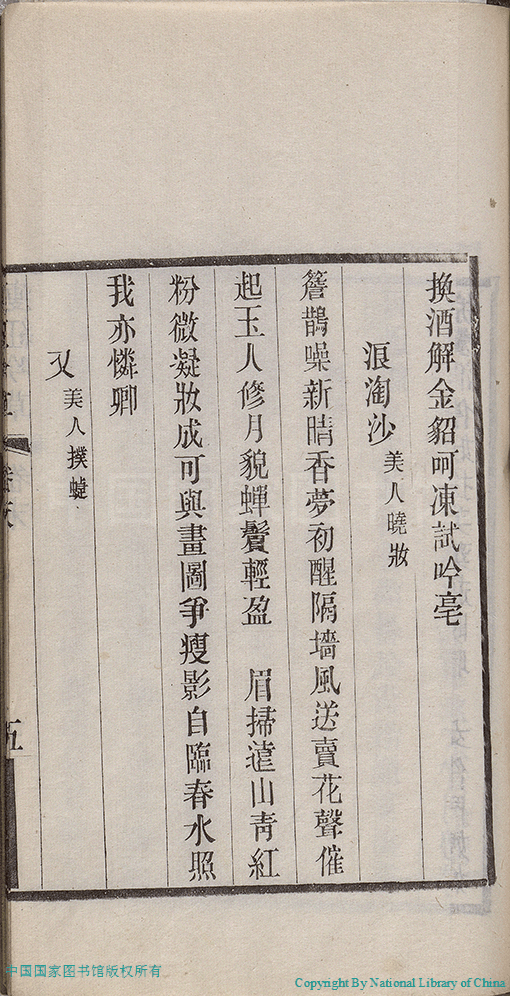 換酒解金貂呵凍試吟毫
浪淘沙 美人曉妝
簷鵲噪新晴香夢初醒隔墻風送賣花聲催
起玉人修月貌蟬鬢輕盈　眉掃遠山青紅
粉微凝妝成可與畫圖爭瘦影自臨春水照
我亦憐卿
又 美人撲蝶
五
中国国家图书馆版权所有
Copyright By National Library of China